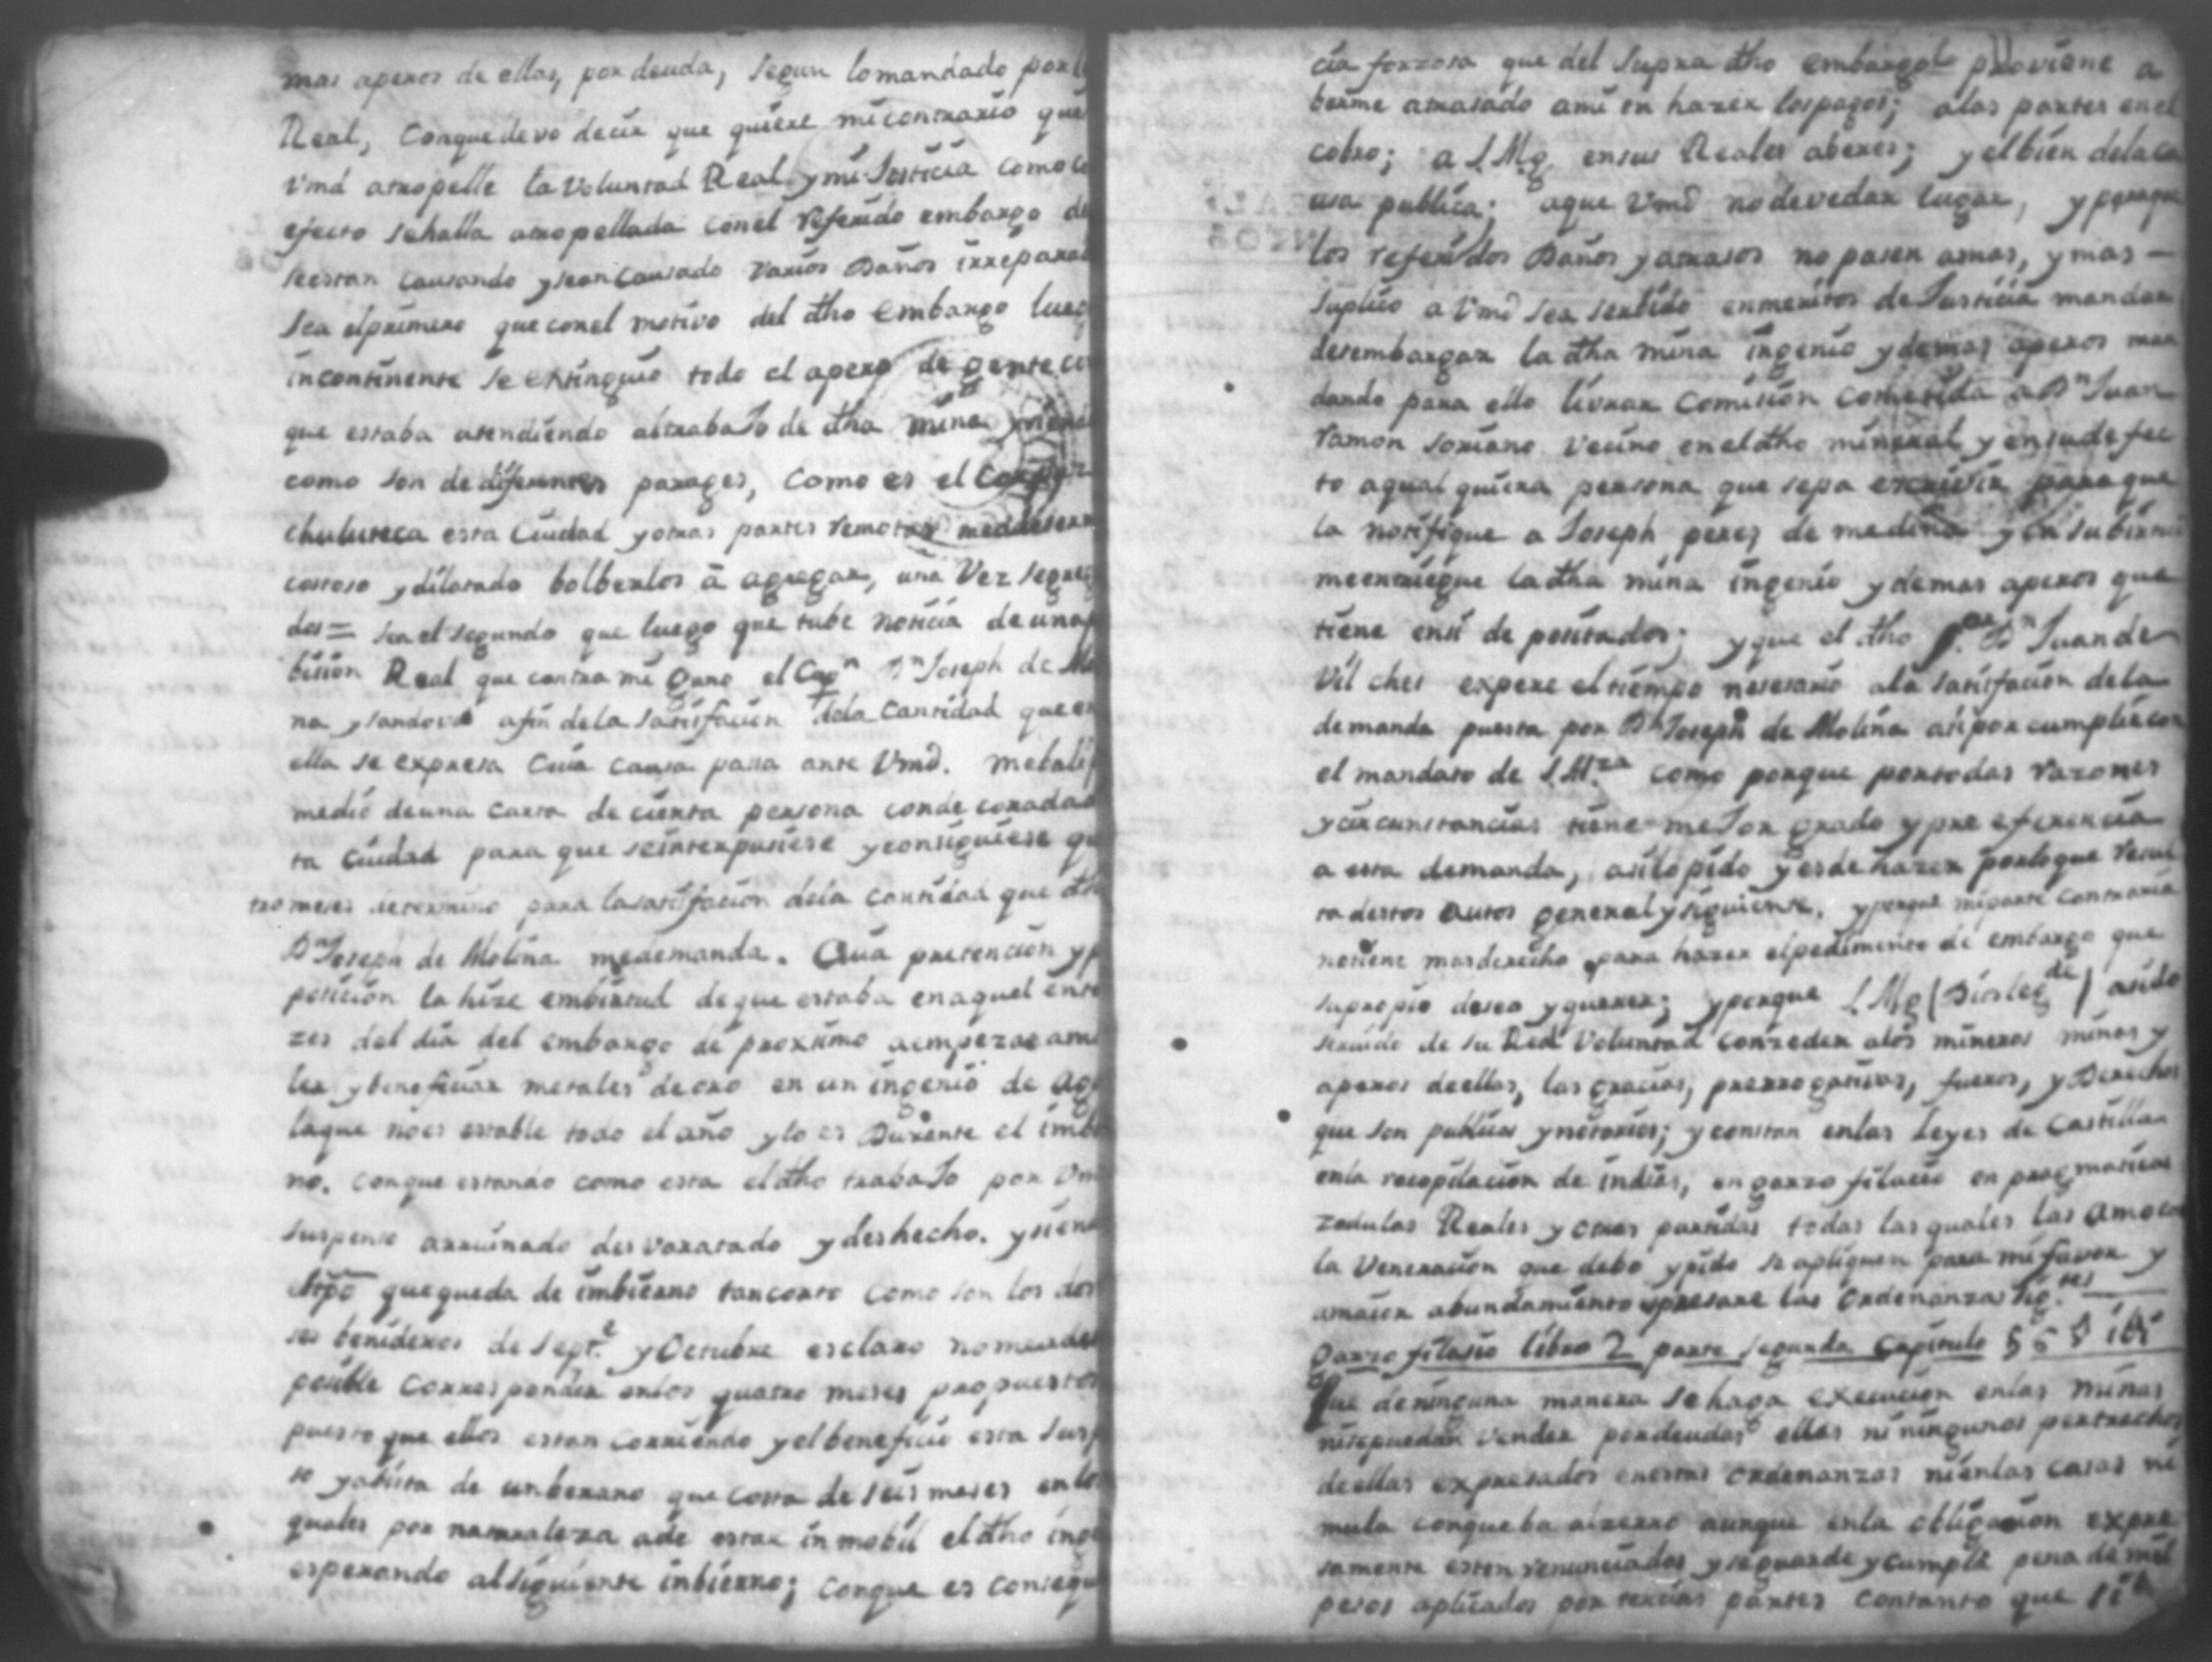 mas aperos de ellas, por deuda, segun lo mandado por l
Real, Conque devo decir que quiere mi contrario que
Vmd atropelle la Voluntad Real y mi Justicia como
efecto se halla atropellada con el referido embargo de
se estan causando y sean causado varios Daños irrepara
sea el primero que con el motivo del dho embargo lueg
incontinente se extinguio todo el apero de gente
que estaba atendiendo al trabaJo de dha mina
como son de diferentes parages, Como es el
chuluteca esta Ciudad y otras partes remotas
costoso y dilatado bolberlos à agregar, una Vez segre
dos = sea el segundo que luego que tube noticia de una
bision Real que contra mi gano el Capn Dn Joseph de Mo
na y sandoval a fin de la satisfacion dela Cantidad que en
ella se expresa Cuia causa para ante Vmd. me bali
medio de una Carta de cierta persona conde corada
ta Ciudad para que se interpusiese y consiguiese
tro meses de termino para la satisfacion dela cantidad que dh
Dn Joseph de Molina me demanda. Cuia pretencion y p
peticion la hize en birtud de que estaba en aquel ento
zes del dia del embargo de proximo a empezar a mo
ler y beneficiar metales de oro en un ingenio de ag
la que no es estable todo el año y lo es Durante el imbi
no. conque estando como esta el dho trabaJo por Vm
suspenso arruinado desvaratado y deshecho. y siend
el tpō que queda de imbierno tan corto como son los dos
ses benideros de Septe. y Octubre es claro no me
posible Corresponder en los quatro meses propuestos
puesto que ellos estan corriendo y el beneficio esta Susp
so y a bista de un berano que costa de seis meses en lo
quales por naturaleza a de estar in mobil el dho inge
esperando al siguiente inbierno; Conque es consequ
cia forzosa que del supra dho embargo proviene a
berme atrasado a mi en hazer los pagos; a las partes en el
cobro; a S.Mg. en sus Reales aberes; y el bien de la ca
usa publica; a que Vmd no deve dar lugar, y para que
los referidos Daños y atrasos no pasen a mas, y mas —
Suplico a Vmd sea servido en meritos de Justicia mandar
desembargar la dha mina ingenio y demas aperos man
dando para ello livrar Comision Cometida a Dn Juan
Ramon Soriano Vecino en el dho mineral y en su defec
to a qual quiera persona que sepa escrivir para que
la notifique a Joseph peres de medina y en su birtu
me entriegue la dha mina ingenio y demas aperos que
tiene en si de positados; y que el dho Dn Juan de
Vil ches espere el tiempo nesesario a la satisfacion de la
demanda puesta por Dn Joseph de Molina asi por cumplir con
el mandato de S.M.za como porque por todas razones
y circunstancias tiene meJor grado y pre eferencia
a esta demanda, asi lo pido y es de hazer por lo que resul
ta destos autos general y siguiente. y porque mi parte contraria
no tiene mas derecho para hazer el pedimento de embargo que
su propio deseo y querer; y porque S.Mg (Dios le gde) a sido
servido de su Real Voluntad Conzeder a los mineros minas y
aperos de ellas, las gracias, prerrogativas, fueros, y Derechos
que son publicos y notorios; y constan en las Leyes de Castilla
en la recopilacion de indias, en garzo filacio en pragmaticas
zedulas Reales y otras partidas todas las quales las
la Veneracion que debo y pido se apliquen para mi favor y
a maior abundamiento espresare las Ordenanzas sig.tes —
Garzo filasio libro 2 parte segunda Capitulo
Que de ninguna manera se haga execucion en las minas
ni se puedan vender por deudas ellas ni ningunos pertrechos
de ellas expresados en estas Ordenanzas ni en las casas ni
mula aunque en la obligacion expre
samente esten renunciados y se guarde y cumpla pena de mil
pesos aplicados por tercias partes contanto que si